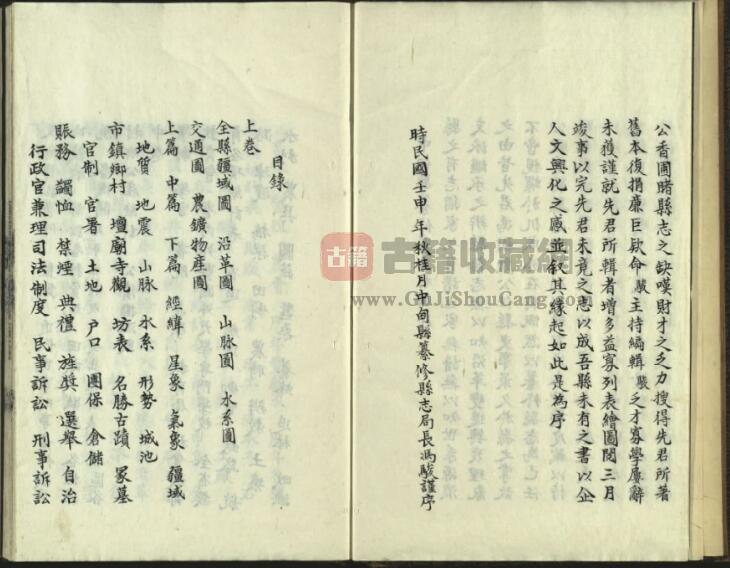 公香圃睹縣志之缺嘆財才之乏力搜得先君所著
舊本復捐廉巨欵命駿主持編輯駿乏才寡學屢辭
未獲謹就先君所輯者增多益寡列表繪圖閱三月
竣事以完先君未竟之志以成吾縣未有之書以企
人文興化之感並叙其緣起如此是為序
時民國壬申年秋桂月中甸縣纂修縣志局長馮駿謹序
目錄
上卷
全縣疆域圖 沿革圖 山脉圖 水系圖
交通圖 農鑛物產圖
上篇 中篇 下篇 經緯 星象 氣象 疆域
地質 地震 山脉 水系 形勢 城池
市鎮鄉村 壇廟寺觀 坊表 名勝古蹟 冢墓
官制 官署 土地 戶口 團保 倉儲
賑務 蠲恤 禁煙 典禮 旌奬 選舉 自治
行政官兼理司法制度 民事訴訟 刑事訴訟
古籍收藏網
www.GuJiShouCang.com